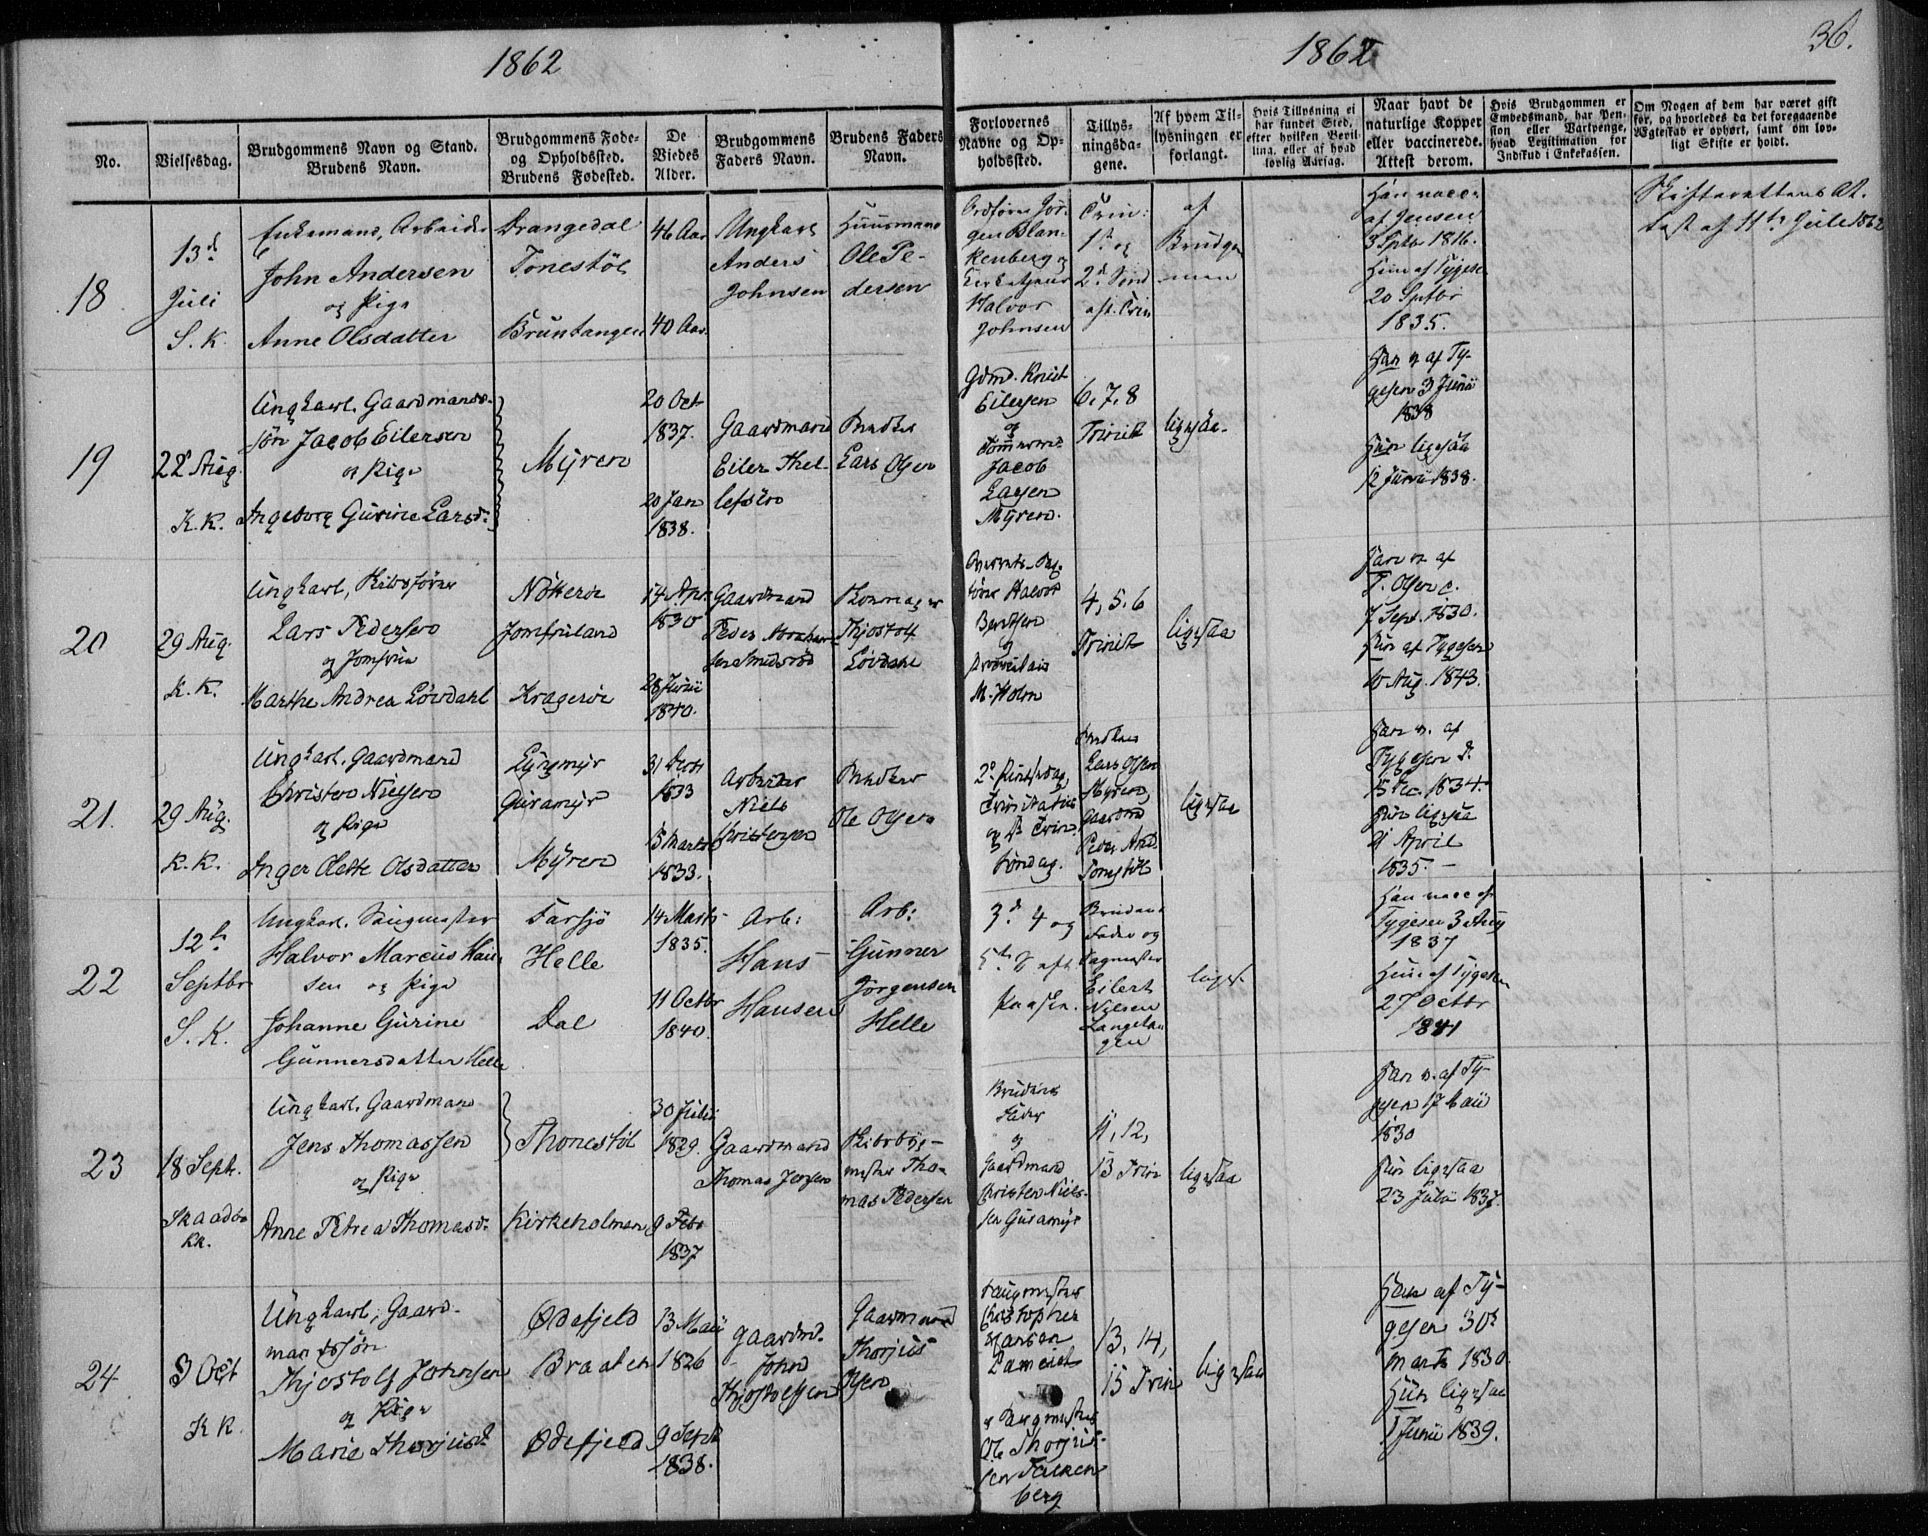 1862
1862
36.
No.
Vielsesdag.
Brudgommens Navn og Stand.
Brudens Navn.
Brudgommens Føde-
og Opholdssted.
Brudens Fødested.
De
Viedes
Alder.
Brudgommens
Faders Navn.
Brudens Faders
Navn.
Forlovernes
Navne og Op-
holdssted.
Tillys-
ningsda-
gene.
Af hvem Til-
lysningen er
forlangt.
Hvis Tillysning ei
har fundet Sted,
efter hvilken Bevil-
ling, eller af hvad
lovlig Aarsag.
Naar havt de
naturlige Kopper
eller vaccinerede.
Attest derom.
Hvis Brudgommen er
Embedsmand, har Pen-
sion eller Vartpenge,
hvad Legitimation for
Indskud i Enkekassen.
Om Nogen af dem har været gift
før, og hvorledes da det foregaaende
Ægteskab er ophørt, samt om lov-
ligt Skifte er holdt.
18
13d
Juli
S. K.
Enkemand, Arbeider
John Andersen
og Pige
Anne Olsdatter
Drangedal
Tonestöl
Bruntangen
46 Aar
40 Aar
Ungkarl
Anders
Johnsen
Huusmand
Ole Pe-
dersen
Jör-
gen Blan-
kenberg og
Halvor
Johnsen
Trin:
1st og
2d Sønd
aft. Trin
af
Brudgo-
men
Han vacc.
af Jensen
3 Sptbr 1816.
Hun af Tygesen
20 Sptbr
1835.
Skifterettens At-
test af 11te Juli 1862
19
22 Aug.
K. K.
Ungkarl. Gaardmands-
søn Jacob Eilersen
og Pige
Ingeborg Gurine Larsd.
Myren
20 Oct
1837.
20 Jan
1838.
Gaardmand
Eiler Thel-
lefsen
Lars Olsen
Gdmd. Knud
Eilersen
og
Tömmermd.
Jacob
Larsen
Myren.
6, 7, 8
Trinit
ligesaa.
Han v. af Ty-
gesen 3 Juni
1838
Hun ligesaa
12 Juni 1838.
20
29 Aug.
K. K.
Ungkarl, Skibsförer
Lars Pedersen
og Jomfru
Marthe Andrea Lövdahl
Nötterøe
Jomfruland
Kragerøe
14 Apr.
1830
28 Juni
1840.
Gaardmand
Peder Abraham-
sen
Skomager
Thjostolf
Lövdahl
Halvor
Berntsen
og
M. Holm
4, 5, 6
Trinit
ligesaa
Han v. af
T. Olsen
7 Sept. 1830.
Hun af Tygesen
10 Aug. 1843.
21.
29 Aug.
K. K.
Ungkarl. Gaardmand
Christen Nielsen
og Pige
Inger Olette Olsdatter
Lyngmyr
Gusamyr
Myren
31 Octr
1833
15 Marts
1833.
Arbeider
Niels
Christensen
Ole Olsen
2d
Trinitatis
og Trin.
Søndag.
Lars Olsen
Myren,
Gaardmd
Peder And.
Tonestöl
ligesaa
Han v. af
Tygesen d.
15 Dec. 1834.
Hun ligesaa
9 April
1835.
22
12te
Septbr
S. K.
Ungkarl. Saugmester
Halvor Marcus Han-
sen og Pige
Johanne Gurine
Gunnersdatter Helle
Farsjö
Helle
Dal
14 Marts
1835.
11 Octbr
1840.
Arb:
Hans
Hansen
Arb:
Gunner
Jörgensen
Helle
3d 4 og
5te S. aft.
Paaske.
Brudens
Fader og
Sagmester
Eilert
Nilsen
Langetan-
gen
liges.
Han vacc af
Tygesen 3 Aug
1837
Hun af Tygesen
27 Octbr
1841
23
18 Sept.
Skaadøe
KK.
Ungkarl. Gaardmand
Jens Thomassen
og Pige
Anne Petrea Thomasd.
Thonestöl
Kirkeholmen
30 Juli
1829.
9 Febr
1837
Gaardmand
Thomas Jensen
Skibsbyg-
mester Tho-
mas Pedersen
Brudens
Fader
og
Gaardmand
Christen Niels-
sen Gusamyr
11, 12,
13 Trin
ligesaa
Han v. af Ty-
gesen 17 Mai
1830
Hun ligesaa
23 Juli 1837.
24
3 Oct
K K.
Ungkarl; Gaard-
mandssøn
Thjostolf Johnsen
og Pige
Marie Thorjusd.
Ødefjeld
Braaten
Ødefjeld
13 Mai
1826
9 Sept
1838.
Gaardmd.
John
Thjostolfsen
Gaardmand
Thorjus
Olsen
Saugmester
Christopher
Hansen
og Saugmester
Ole Thorjus-
sen Falken-
berg
13, 14,
15 Trin
ligesaa
Han af Ty-
gesen 30
Marts 1830.
Hun ligesaa
1 Juni 1839.